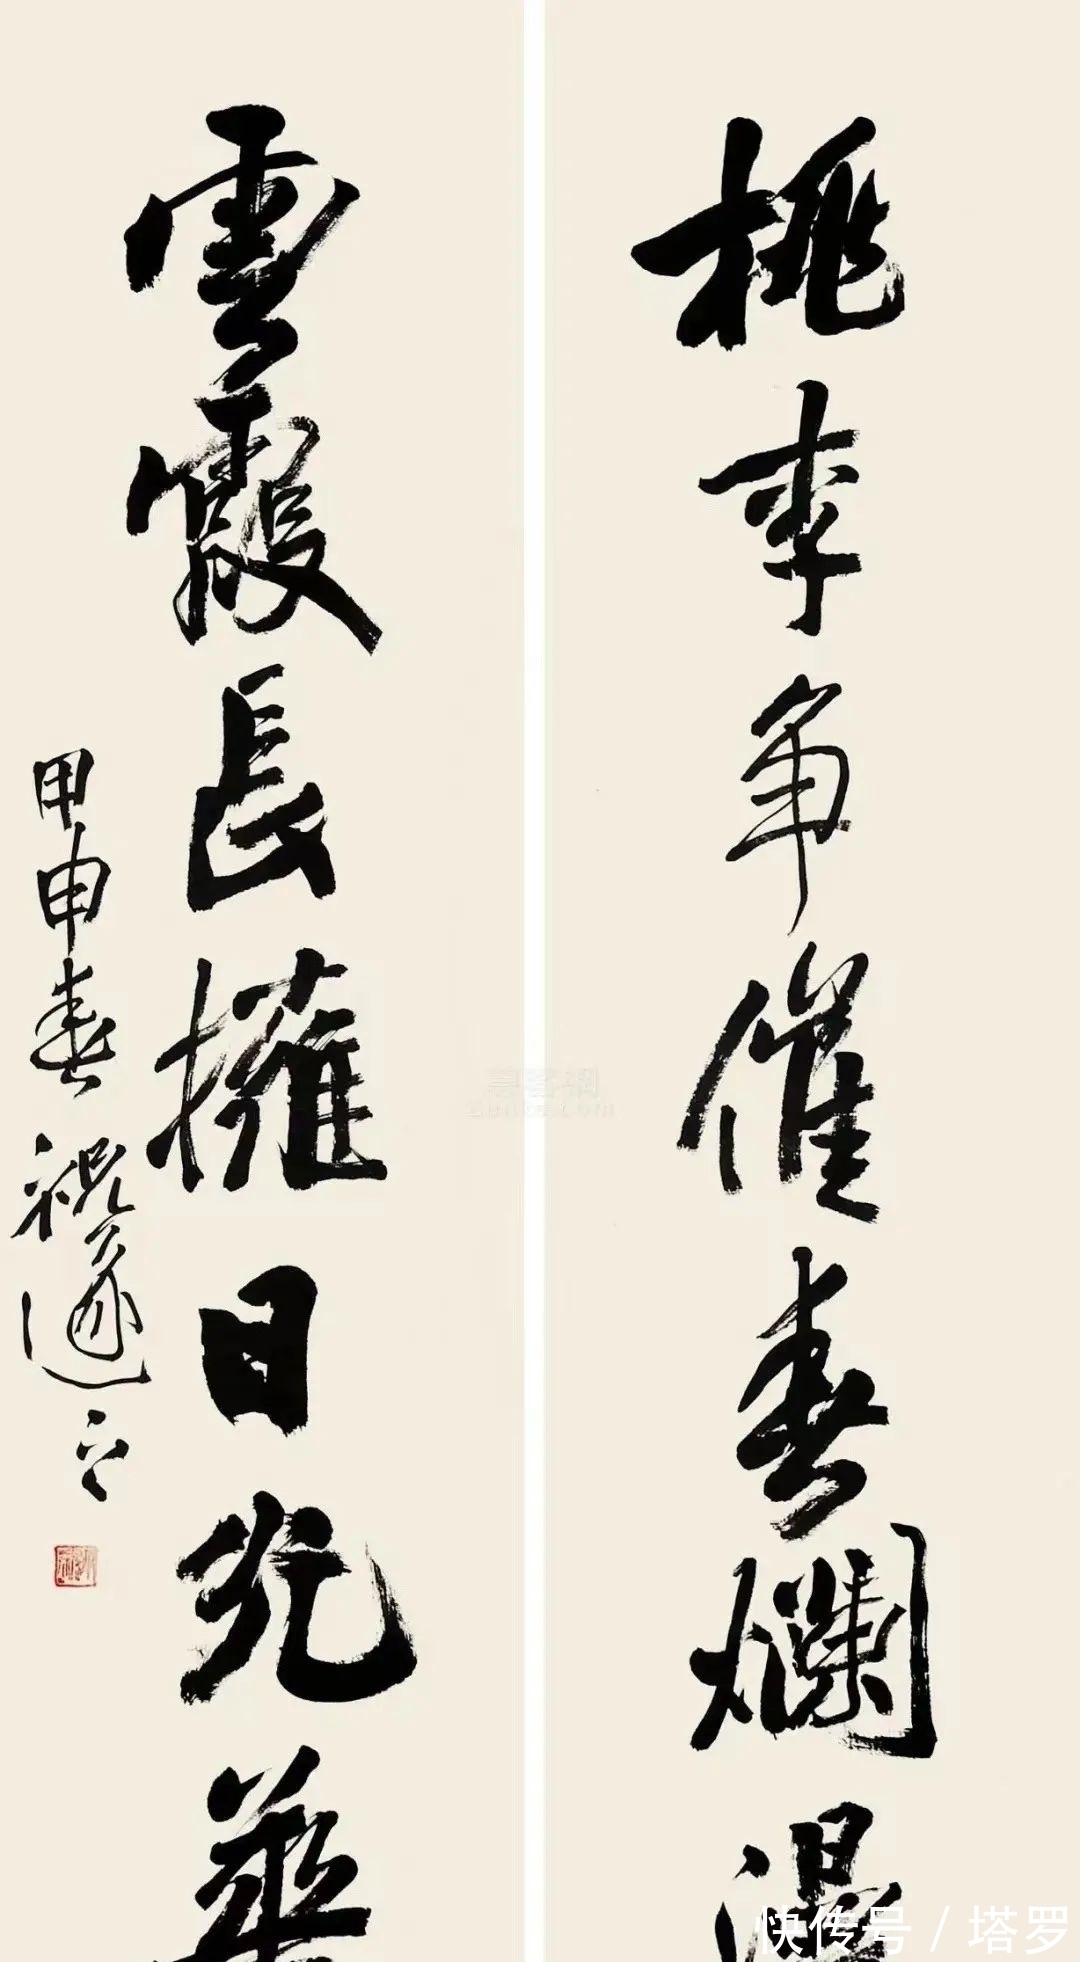 桃李争催春爛漫
雲霞長擁日光華
甲申春 祝遂之
快传号 / 塔罗